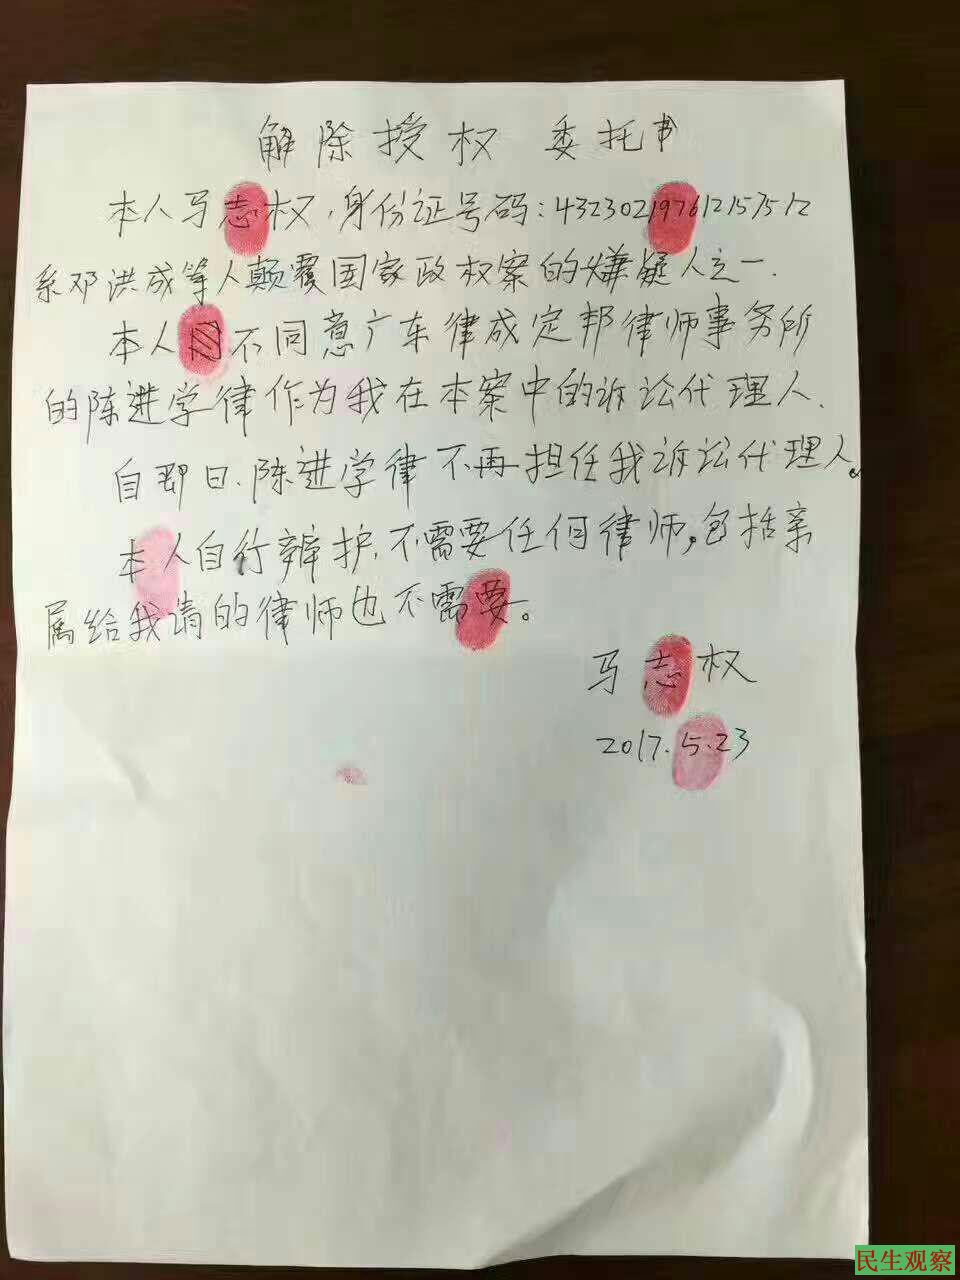 解除授权 委托书
本人马志权，身份证号码：432302197612157512
系邓洪成等人颠覆国家政权案的嫌疑人之一．
本人不同意广东律成定邦律师事务所
的陈进学律作为我在本案中的诉讼代理人．
自即日、陈进学律不再担任我诉讼代理人。
本人自行辩护，不需要任何律师，包括亲
属给我请的律师也不需要。
马志权
2017.5.23
民生观察